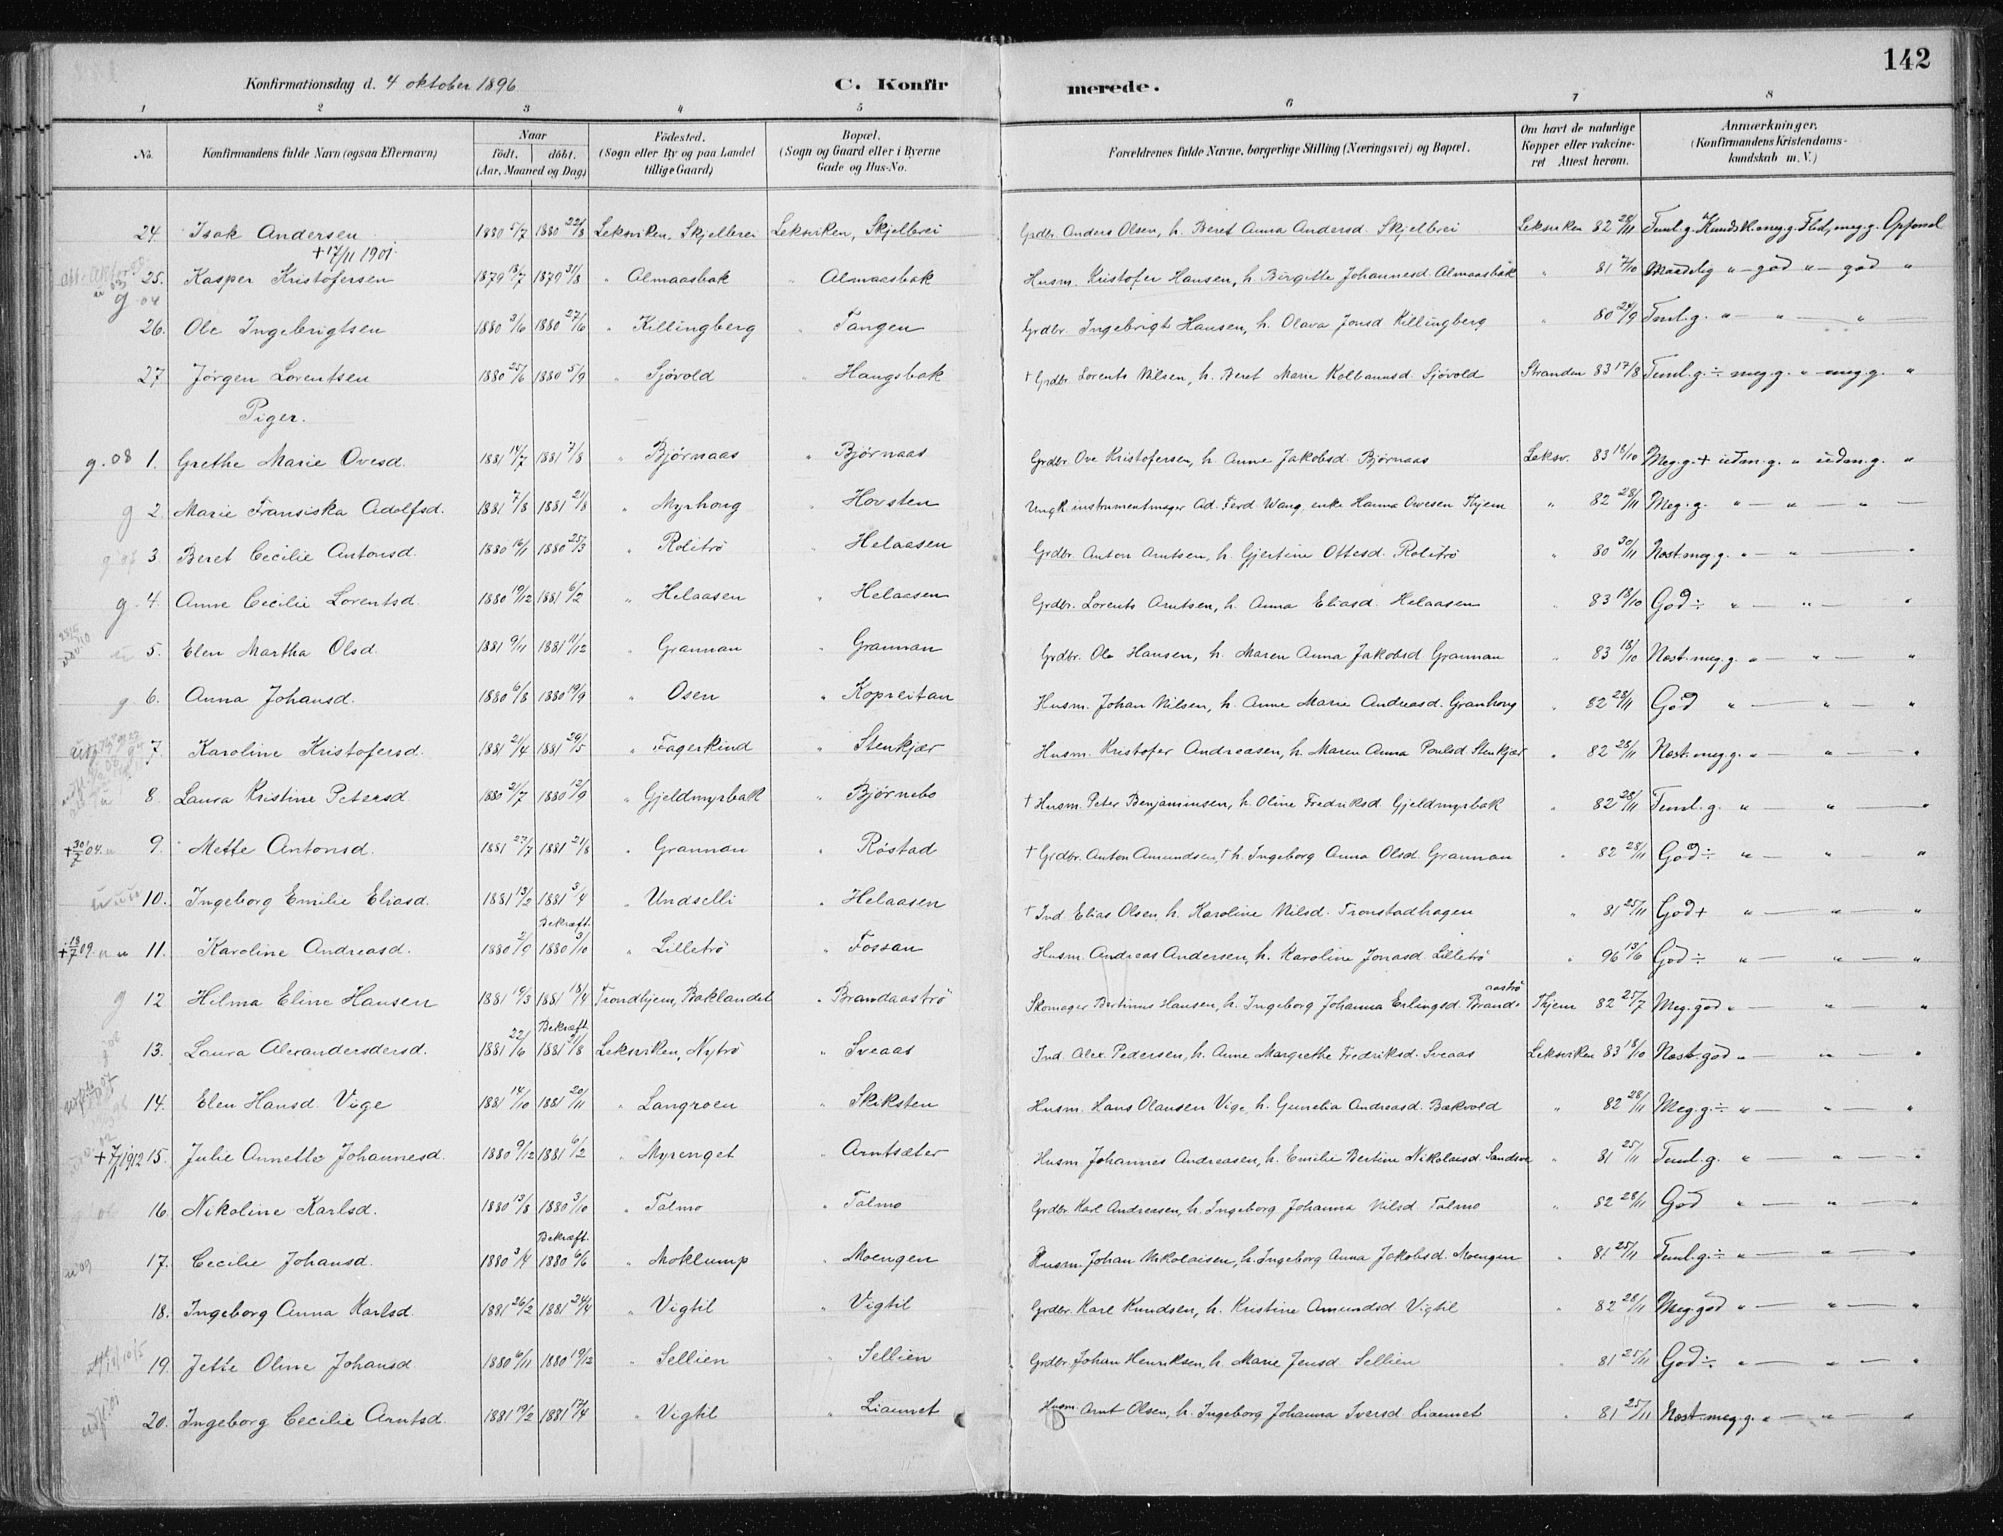 142
Konfirmationsdag d. 4 oktober 1896
C. Konfirmerede.
1 2 3 4 5 6 7 8
No. Konfirmandens fulde Navn (ogsaa Efternavn) Naar født. døbt. (Aar, Maaned og Dag) Fødested. (Sogn eller By og paa Landet tillige Gaard) Bopæl. (Sogn og Gaard eller i Byerne Gade og Hus-No. Forældrenes fulde Navne, borgerlige Stilling (Næringsvei) og Bopæl. Om havt de naturlige Kopper eller vakcineret Attest herom. Anmærkninger. (Konfirmandens Kristendomskundskab m. V.)
24. Isak Andersen 1880 5/7 1880 22/8 Leksviken, Skjelbrei Leksviken, Skjelbrei Grdbr. Anders Olsen, h. Beret Anna Andersd. Skjelbrei Leksviken 82 28/11 Teml. g. Kundsk. meg. g. Flid, meg. g. Opførsel
+17/11 1901.
25. Kasper Kristofersen 1879 13/7 1879 31/8 " Almaasbak " Almaasbak Husm. Kristofer Hansen, h. Birgitte Johannesd. Almaasbak " 81 7/10 Maadelig " god " god "
26. Ole Ingebrigtsen 1880 3/6 1880 27/6 " Killingberg " Tangen Grdbr. Ingebrigt Hansen, h. Olava Jonsd Killingberg " 80 29/9 Teml. g. " — " — " —
27 Jørgen Lorentsen 1880 25/6 1880 5/9 " Sjøvold " Haugsbak + Grdbr Lorents Nilsen, h. Beret Marie Kolbannsd. Sjøvold Stranden 83 17/8 Teml. g. ÷ meg. g. " meg. g. "
Piger.
g. 08 1. Grethe Marie Ovesd. 1881 14/7 1881 7/8 " Bjørnaas " Bjørnaas Grdbr Ove Kristofersen, h. Anne Jakobsd. Bjørnaas Leksv. 83 18/10 Meg. g. + udm. g. " udm. g. "
g 2. Marie Fransiska Adolfsd. 1881 7/8 1881 21/8 " Myrhoug Hovsten Ungk. instrumentmager Ad. Ferd Wang, enke Hanna Owesen Thjem " 82 28/11 Meg. g. " — " — " —
3. Beret Cecilie Antonsd. 1880 16/1 1880 25/3 " Rolitrø " Helaasen Grdbr. Anton Arntsen, h. Gjertine Ottesd. Rolitrø " 80 30/11 Næst meg. g. " — " — "
g. 4. Anne Cecilie Lorentsd. 1880 19/12 1881 6/2 " Helaasen " Helaasen Grdbr. Lorents Arntsen, h. Anna Eliasd. Helaasen " 83 18/10 God ÷ " — " — "
5. Elen Martha Olsd. 1881 9/11 1881 11/12 " Grannan " Grannan Grdbr. Ole Hansen, h. Maren Anna Jakobsd Grannan " 83 18/10 Næst meg. g. " — " — "
g 6. Anna Johansd. 1880 6/8 1880 19/9 " Osen " Kopreitan Husm. Johan Nilsen, h. Anne Marie Andreasd. Granhoug " 82 28/11 God " — " — "
7. Karoline Kristofersd. 1881 21/4 1881 29/5 " Fagerkind " Stenkjær Husm. Kristofer Andreasen, h. Maren Anna Poulsd Stenkjær " 82 28/11 Næst meg. g. " — " — "
8. Laura Kristine Petersd. 1880 2/7 1880 12/9 " Gjeldmyrbak " Bjørnebo + Husm. Peter Benjaminsen, h. Oline Fredriksd. Gjeldmyrbak " 82 28/11 Teml. g. " — " — "
+30/7 04. u 9. Mette Antonsd. 1881 27/7 1881 21/8 " Grannan " Røstad + Grdbr. Anton Amundsen, + h. Ingeborg Anna Olsd. Grannan " 82 28/11 God ÷ " — " — "
10. Ingeborg Emilie Eliasd. 1881 13/2 1881 3/4 " Undselli " Helaasen + Ind. Elias Olsen, h. Karoline Nilsd. Tronstadhagen " 81 25/11 God + " — " — "
Bekræft.
+18/7 09. u u 11. Karoline Andreasd. 1880 2/9 1880 3/10 " Lilletrø " Fossan Husm. Andreas Andersen, h. Karoline Jonasd. Lilletrø " 96 13/6 God ÷ " — " — "
g 12 Helma Eline Hansen 1881 19/3 1881 18/4 Trondhjem, Baklandet " Brandaastrø Skomager Bertinus Hansen, h. Ingeborg Johanna Erlingsd. Brandaastrø Thjem 82 25/7 Meg. god " — " — "
Bekræft.
13. Laura Alexandersdersd. 1881 22/6 1881 21/8 Leksviken, Nytrø " Sveaas Ind. Alex. Pedersen, h. Anne Margrethe Fredriksd. Sveaas Leksviken 83 18/10 Næst. god " — " — "
14. Elen Hansd. Vige 1881 14/10 1881 20/11 " Langroen " Skiksten Husm. Hans Olausen Vige, h. Gunelia Andreasd. Bækvold " 82 28/11 Meg. g. ÷ " — " — "
+7/1 1912 15. Julie Annette Johannesd. 1880 9/12 1881 6/2 " Myrenget " Arntsæter Husm. Johannes Andreasen, h. Emilie Bertine Nikolaisd. " 81 25/11 Teml. g. " — " — "
16. Nikoline Karlsd. 1880 13/8 1880 3/10 " Talmo " Talmo Grdbr. Karl Andreasen, h. Ingeborg Johanna Nilsd Talmo " 82 28/11 God " — " — "
Bekræft.
u 09 17. Cecilie Johansd. 1880 3/4 1880 6/6 " Moklump " Moengen Husm. Johan Nikolaisen, h. Ingeborg Anna Jakobsd. Moengen " 81 25/11 Teml. g. ÷ " — " — "
18. Ingeborg Anna Karlsd. 1881 26/2 1881 24/4 " Vigtil " Vigtil Grdbr Karl Knudsen, h. Kristine Amundsd Vigtil " 82 28/11 Meg. god " — " — "
19. Jette Oline Johansd 1880 6/11 1880 19/12 " Sellien " Sellien Grdbr. Johan Henriksen, h. Marie Jensd. Sellien " 81 25/11 God ÷ " — " — "
20. Ingeborg Cecilie Arntsd. 1881 19/2 1881 17/4 " Vigtil " Liaunet Husm. Arnt Olsen, h. Ingeborg Johanna Iversd Liaunet " 81 25/11 Næst meg. g. " — " — "